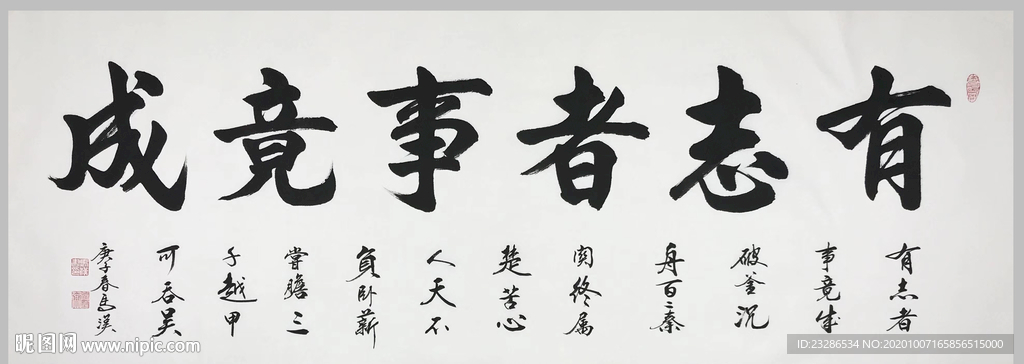 有志者事竟成
有志者
事竟成
破釜沉
舟百二秦
関終属
楚苦心
人天不
負卧薪
嘗膽三
千越甲
可吞吴
庚子春
昵图网 www.nipic.com
ID:23286534 NO:20201007165856515000